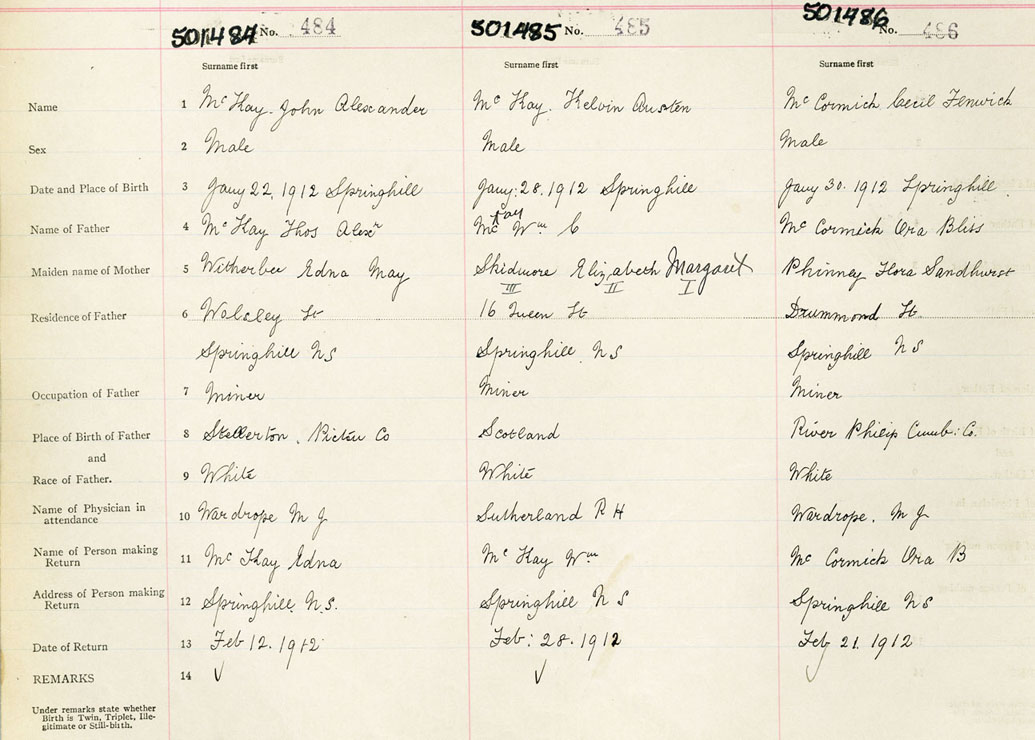 501484 No. 484 501485 No. 485 501486 No. 486
Surname first Surname first Surname first
Name 1 Mc Kay. John Alexander Mc Kay. Kelvin Austen Mc Cormick Cecil Fenwick
Sex 2 Male Male Male
Date and Place of Birth 3 Jany 22, 1912 Springhill Jany: 28. 1912 Springhill Jany 30. 1912 Springhill
Kay
Name of Father 4 Mc Kay Thos Alexr Mc Wm C Mc Cormick Ora Bliss
Maiden name of Mother 5 Witherbee Edna May Skidmore Elizabeth Margaret Phinney Flora Sandhurst
III II I
Residence of Father 6 Wolsley St 16 Queen St Drummond St.
Springhill NS Springhill NS Springhill NS
Occupation of Father 7 Miner Miner Miner
Place of Birth of Father 8 Stellerton, Pictou Co Scotland River Philip Cumb: Co.
and
Race of Father. 9 White White White
Name of Physician in
attendance 10 Wardrope M J Sutherland R H Wardrope. M J
Name of Person making
Return 11 Mc Kay Edna Mc Kay Wm Mc Cormick Ora B
Address of Person making
Return 12 Springhill N.S. Springhill N S Springhill NS
Date of Return 13 Feb 12. 1912 Feb: 28. 1912 Feb 21. 1912
REMARKS 14 √ √ √
Under remarks state whether
Birth is Twin, Triplet, Ille-
gitimate or Still-birth.